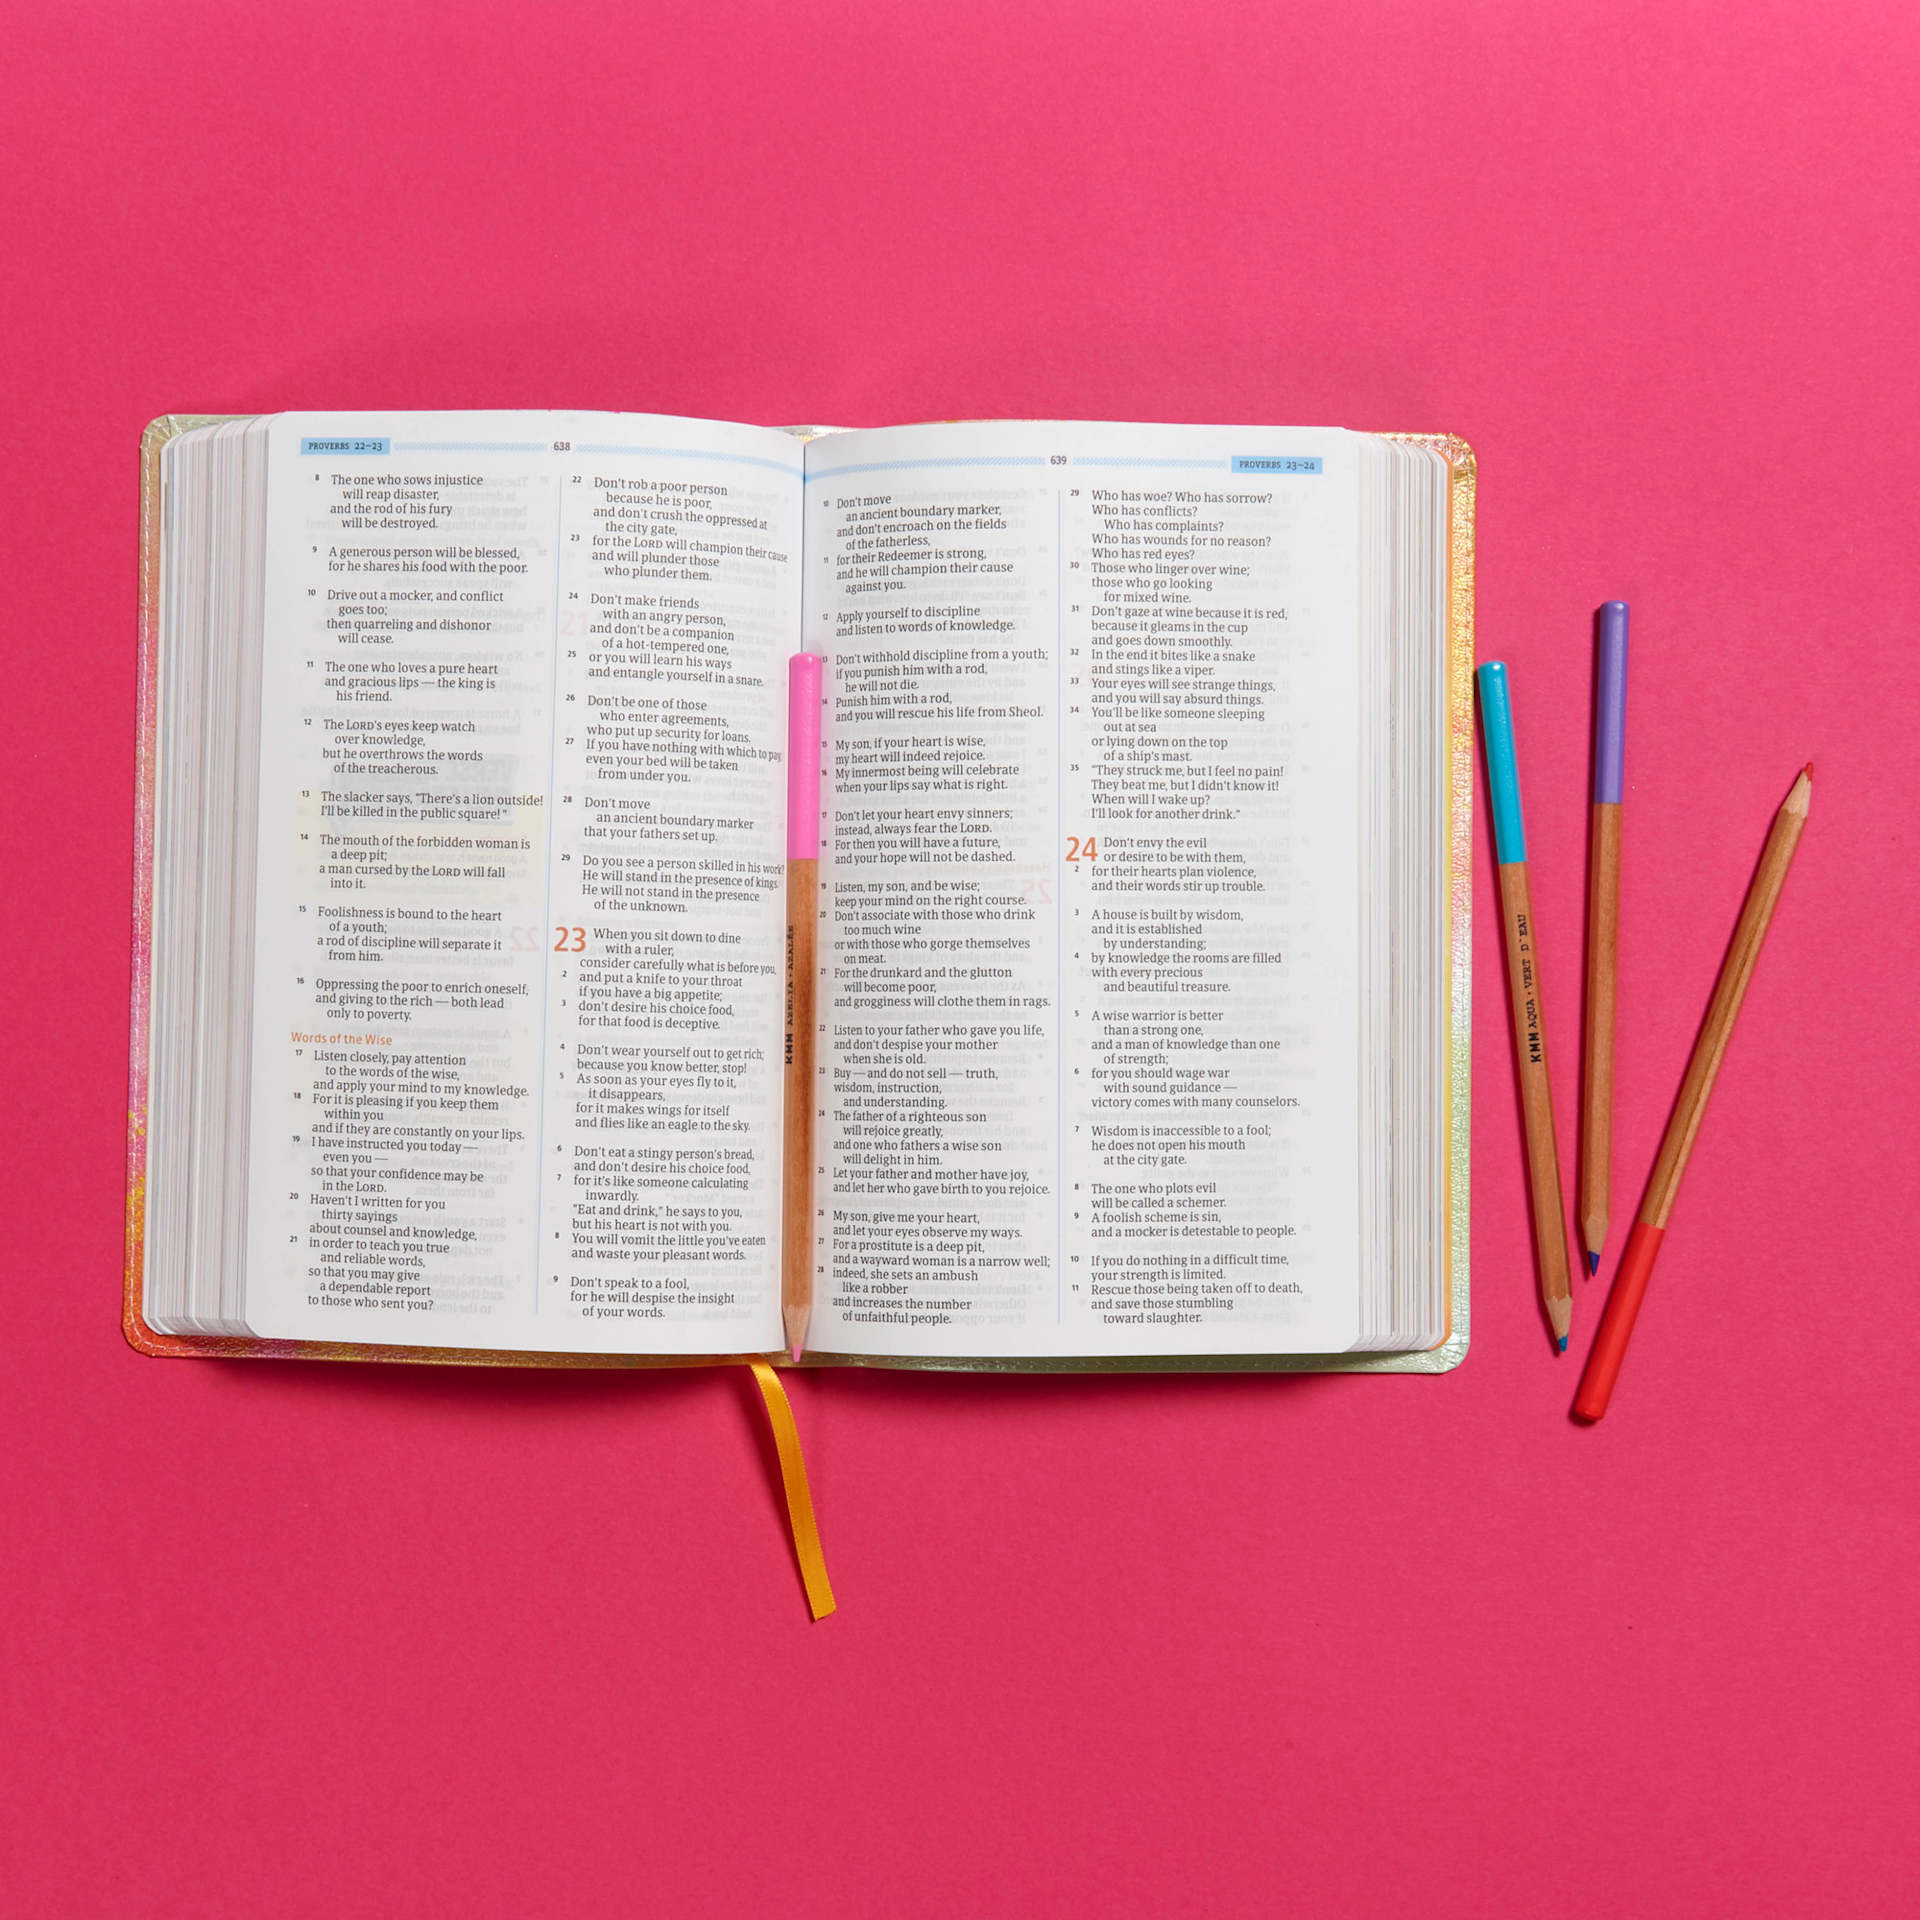 PROVERBS 22–23
638
8 The one who sows injustice
will reap disaster,
and the rod of his fury
will be destroyed.
9 A generous person will be blessed,
for he shares his food with the poor.
10 Drive out a mocker, and conflict
goes too;
then quarreling and dishonor
will cease.
11 The one who loves a pure heart
and gracious lips — the king is
his friend.
12 The LORD's eyes keep watch
over knowledge,
but he overthrows the words
of the treacherous.
13 The slacker says, "There's a lion outside!
I'll be killed in the public square!"
14 The mouth of the forbidden woman is
a deep pit;
a man cursed by the LORD will fall
into it.
15 Foolishness is bound to the heart
of a youth;
a rod of discipline will separate it
from him.
16 Oppressing the poor to enrich oneself,
and giving to the rich — both lead
only to poverty.
Words of the Wise
17 Listen closely, pay attention
to the words of the wise,
and apply your mind to my knowledge.
18 For it is pleasing if you keep them
within you
and if they are constantly on your lips.
19 I have instructed you today —
even you —
so that your confidence may be
in the LORD.
20 Haven't I written for you
thirty sayings
about counsel and knowledge,
21 in order to teach you true
and reliable words,
so that you may give
a dependable report
to those who sent you?
22 Don't rob a poor person
because he is poor,
and don't crush the oppressed at
the city gate,
23 for the LORD will champion their cause
and will plunder those
who plunder them.
24 Don't make friends
with an angry person,
and don't be a companion
of a hot-tempered one,
25 or you will learn his ways
and entangle yourself in a snare.
26 Don't be one of those
who enter agreements,
who put up security for loans.
27 If you have nothing with which to pay,
even your bed will be taken
from under you.
28 Don't move
an ancient boundary marker
that your fathers set up.
29 Do you see a person skilled in his work?
He will stand in the presence of kings.
He will not stand in the presence
of the unknown.
23 When you sit down to dine
with a ruler,
consider carefully what is before you,
2 and put a knife to your throat
if you have a big appetite;
3 don't desire his choice food,
for that food is deceptive.
4 Don't wear yourself out to get rich;
because you know better, stop!
5 As soon as your eyes fly to it,
it disappears,
for it makes wings for itself
and flies like an eagle to the sky.
6 Don't eat a stingy person's bread,
and don't desire his choice food,
7 for it's like someone calculating
inwardly.
"Eat and drink," he says to you,
but his heart is not with you.
8 You will vomit the little you've eaten
and waste your pleasant words.
9 Don't speak to a fool,
for he will despise the insight
of your words.
KMM AZELIA • AZALÉE
639
PROVERBS 23–24
10 Don't move
an ancient boundary marker,
and don't encroach on the fields
of the fatherless,
11 for their Redeemer is strong,
and he will champion their cause
against you.
12 Apply yourself to discipline
and listen to words of knowledge.
13 Don't withhold discipline from a youth;
if you punish him with a rod,
he will not die.
14 Punish him with a rod,
and you will rescue his life from Sheol.
15 My son, if your heart is wise,
my heart will indeed rejoice.
16 My innermost being will celebrate
when your lips say what is right.
17 Don't let your heart envy sinners;
instead, always fear the LORD.
18 For then you will have a future,
and your hope will not be dashed.
19 Listen, my son, and be wise;
keep your mind on the right course.
20 Don't associate with those who drink
too much wine
or with those who gorge themselves
on meat.
21 For the drunkard and the glutton
will become poor,
and grogginess will clothe them in rags.
22 Listen to your father who gave you life,
and don't despise your mother
when she is old.
23 Buy — and do not sell — truth,
wisdom, instruction,
and understanding.
24 The father of a righteous son
will rejoice greatly,
and one who fathers a wise son
will delight in him.
25 Let your father and mother have joy,
and let her who gave birth to you rejoice.
26 My son, give me your heart,
and let your eyes observe my ways.
27 For a prostitute is a deep pit,
and a wayward woman is a narrow well;
28 indeed, she sets an ambush
like a robber
and increases the number
of unfaithful people.
29 Who has woe? Who has sorrow?
Who has conflicts?
Who has complaints?
Who has wounds for no reason?
Who has red eyes?
30 Those who linger over wine;
those who go looking
for mixed wine.
31 Don't gaze at wine because it is red,
because it gleams in the cup
and goes down smoothly.
32 In the end it bites like a snake
and stings like a viper.
33 Your eyes will see strange things,
and you will say absurd things.
34 You'll be like someone sleeping
out at sea
or lying down on the top
of a ship's mast.
35 "They struck me, but I feel no pain!
They beat me, but I didn't know it!
When will I wake up?
I'll look for another drink."
24 Don't envy the evil
or desire to be with them,
2 for their hearts plan violence,
and their words stir up trouble.
3 A house is built by wisdom,
and it is established
by understanding;
4 by knowledge the rooms are filled
with every precious
and beautiful treasure.
5 A wise warrior is better
than a strong one,
and a man of knowledge than one
of strength;
6 for you should wage war
with sound guidance —
victory comes with many counselors.
7 Wisdom is inaccessible to a fool;
he does not open his mouth
at the city gate.
8 The one who plots evil
will be called a schemer.
9 A foolish scheme is sin,
and a mocker is detestable to people.
10 If you do nothing in a difficult time,
your strength is limited.
11 Rescue those being taken off to death,
and save those stumbling
toward slaughter.
KMM AQUA • VERT D'EAU